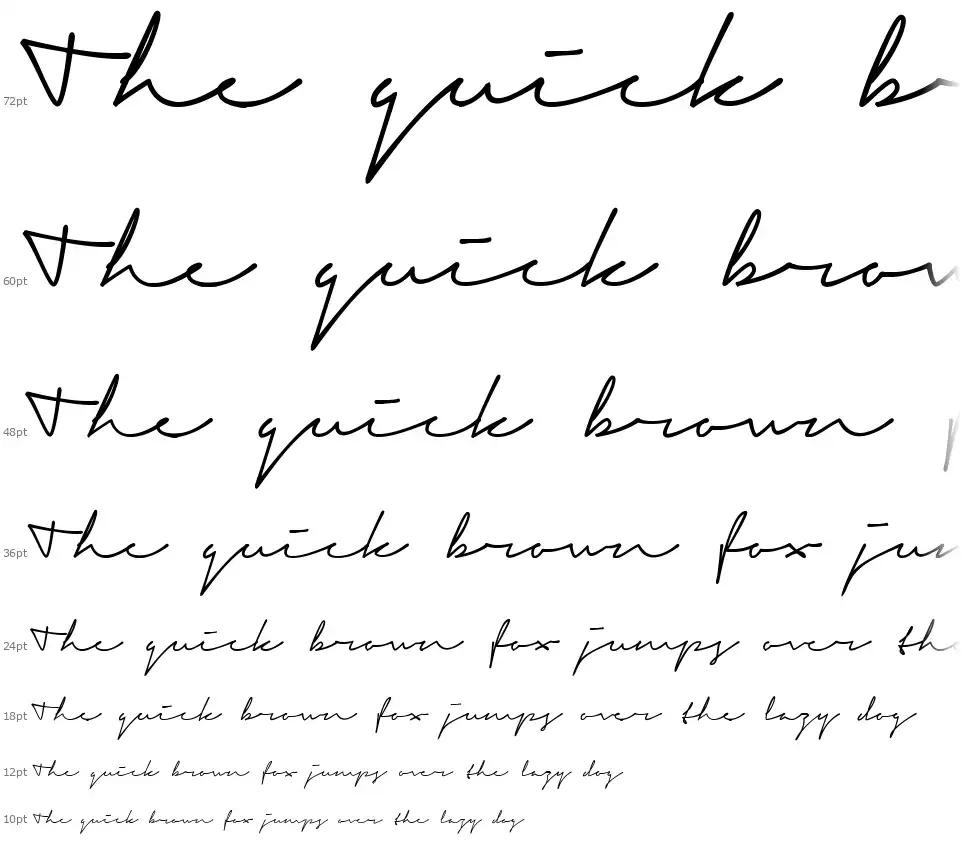 72pt The quick br
60pt The quick brow
48pt The quick brown
36pt The quick brown fox jun
24pt The quick brown fox jumps over the
18pt The quick brown fox jumps over the lazy dog
12pt The quick brown fox jumps over the lazy dog
10pt The quick brown fox jumps over the lazy dog